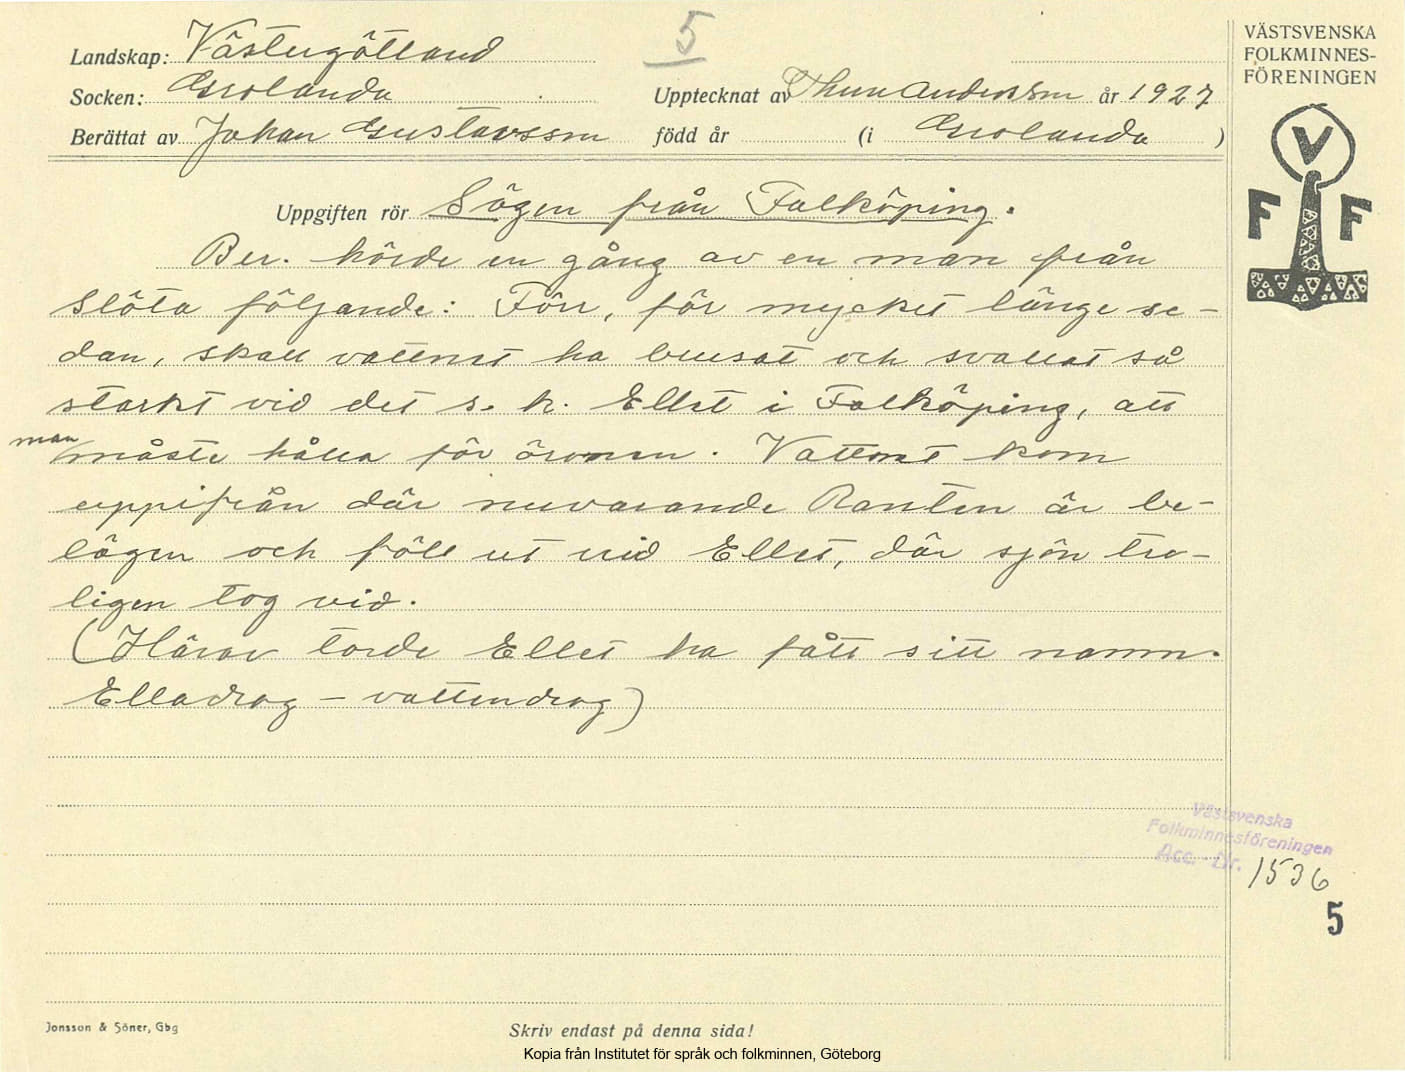 5
VÄSTSVENSKA
FOLKMINNES-
FÖRENINGEN
Landskap: Västergötland
Socken: Grolanda Upptecknat av Thure Andersson år 1927
Berättat av Johan Gustavsson född år (i Grolanda )
V
F F
Uppgiften rör Sägen från Falköping.
Ber. hörde en gång av en man från
Slöta följande: Förr, för mycket länge se-
dan, skall vattnet ha brusat och svallat så
starkt vid det s. k. Ellet i Falköping, att
man måste hålla för öronen. Vattnet kom
uppifrån där nuvarande Ranten är be-
lägen och föll ut vid Ellet, där sjön tro-
ligen tog vid.
(Härav torde Ellet ha fått sitt namn.
Elladrag – vattendrag)
Västsvenska
Folkminnesföreningen
Acc. - Nr. 1536
5
Jonsson & Söner, Gbg
Skriv endast på denna sida!
Kopia från Institutet för språk och folkminnen, Göteborg